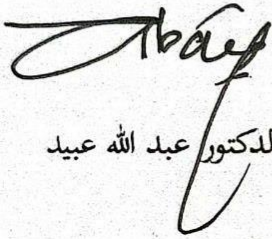 لدكتور عبد الله عبيد